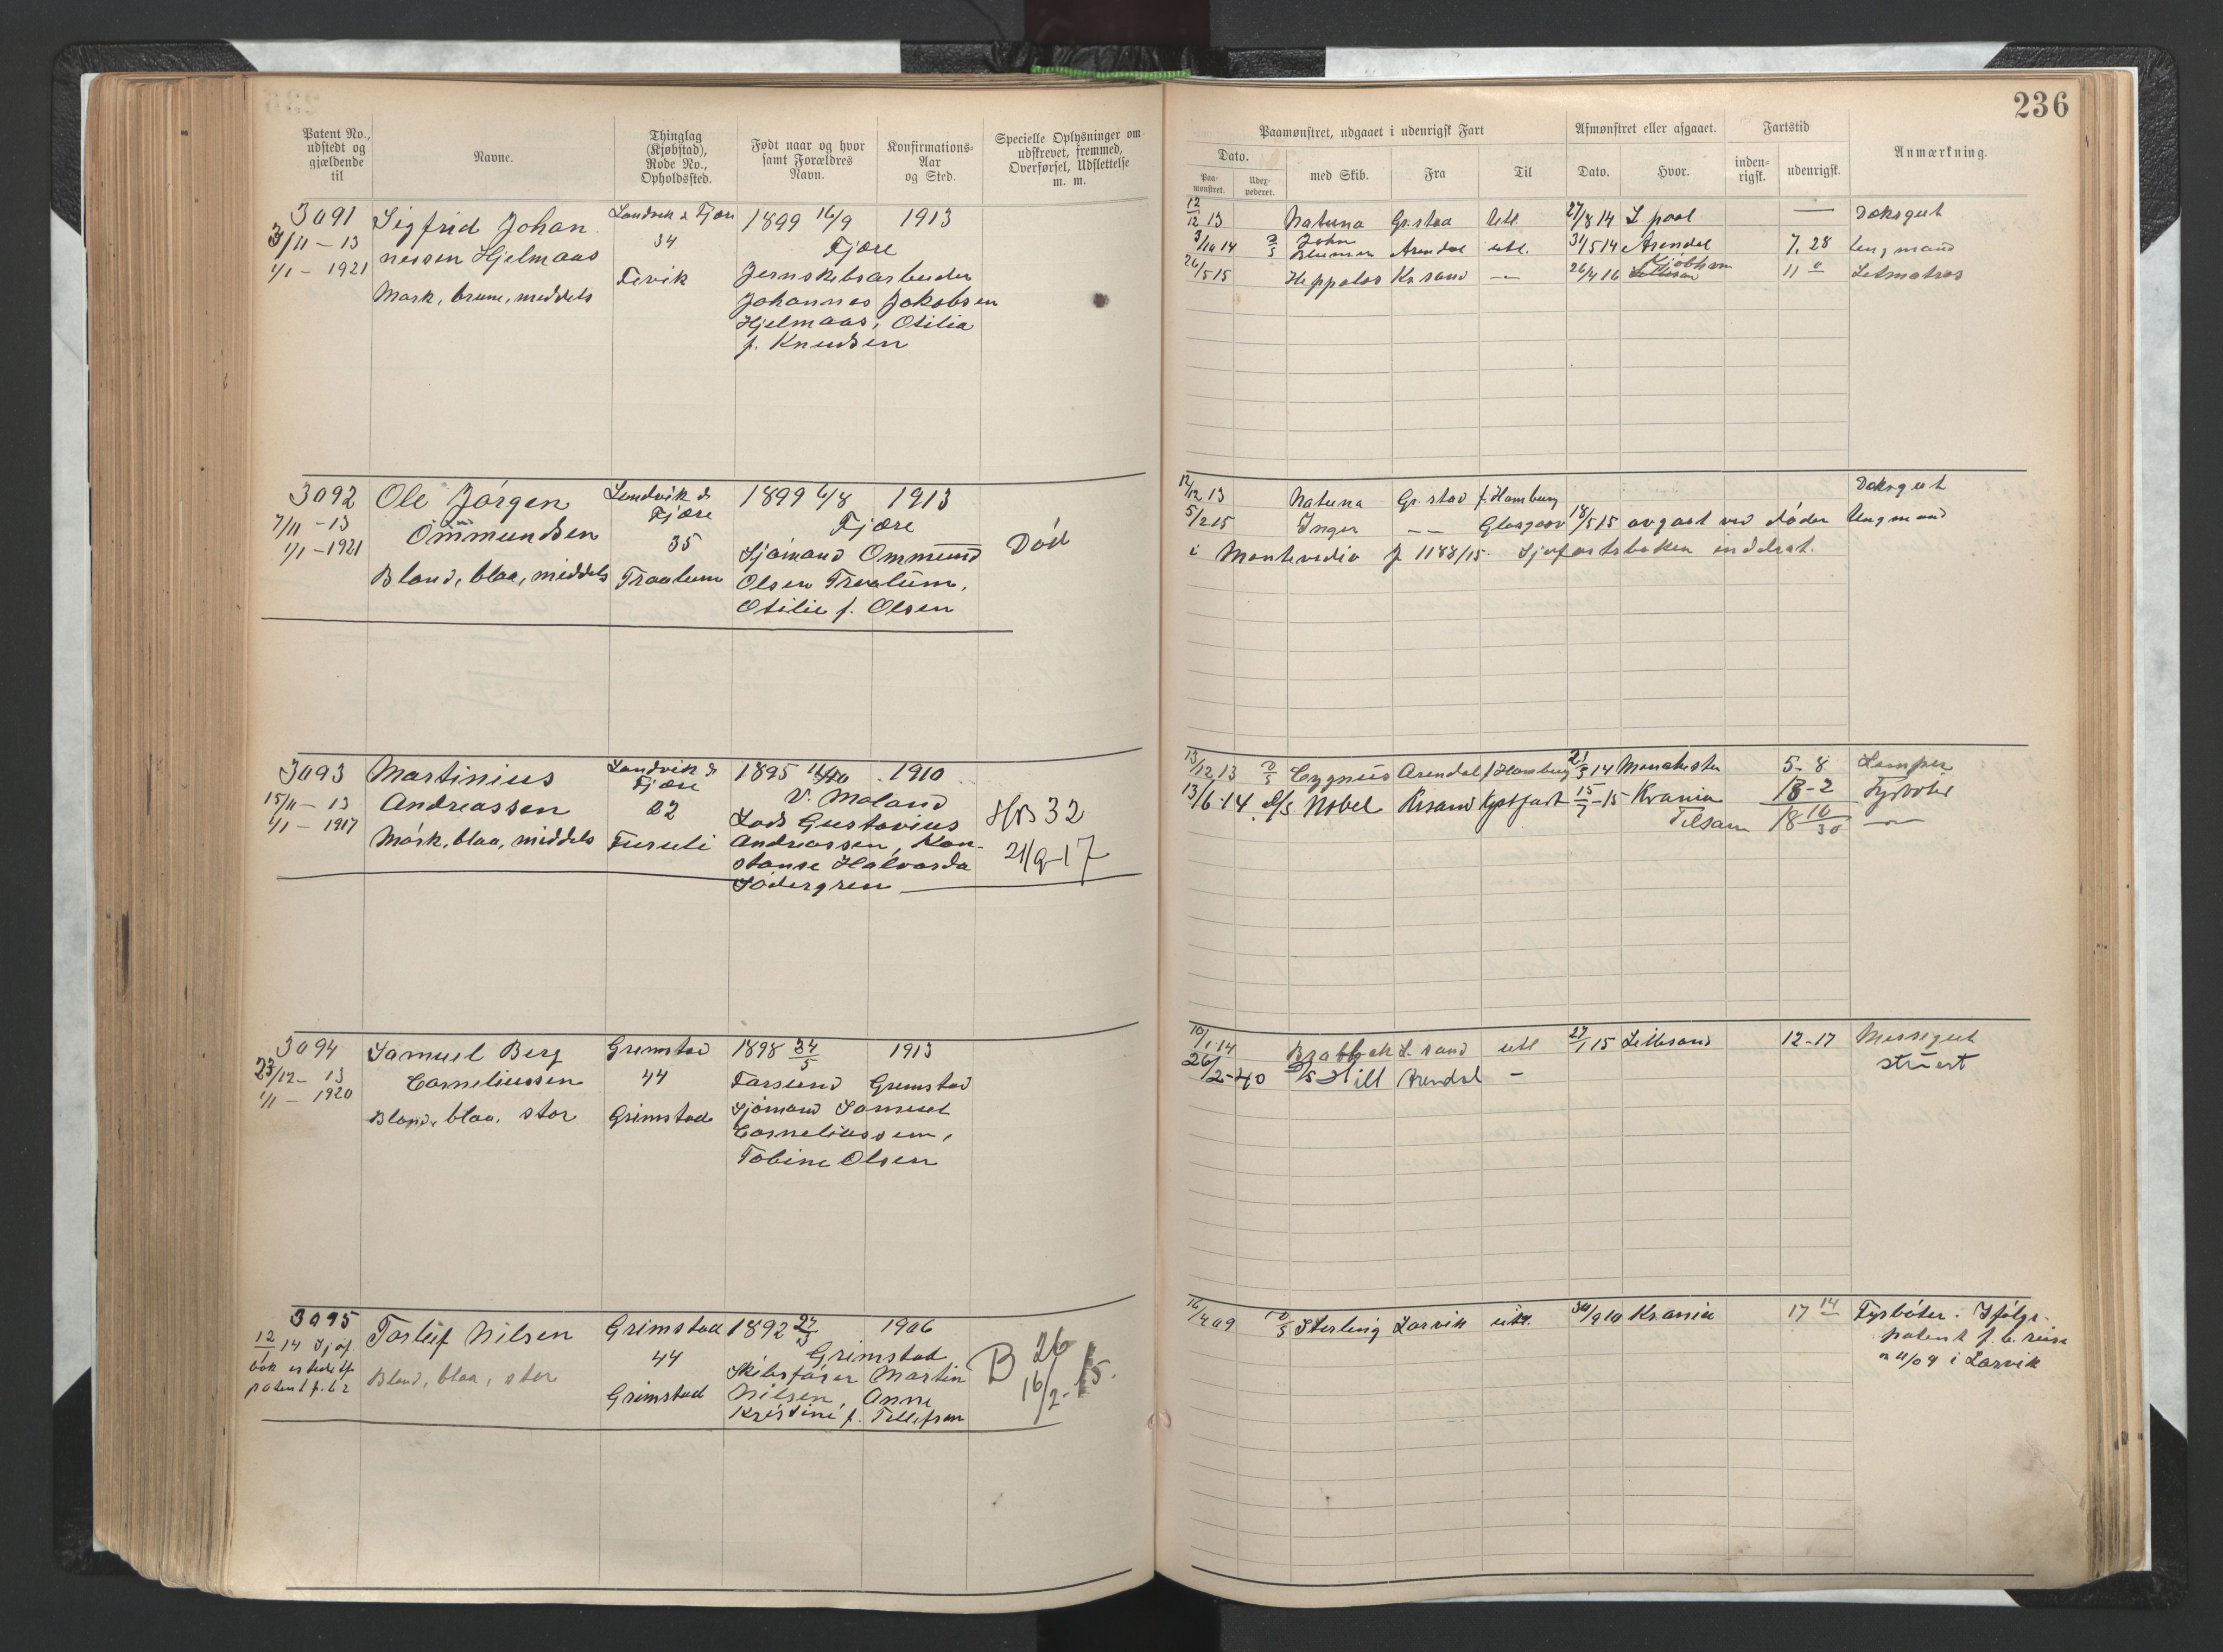 236
Patent No., udstedt og gjældende til
Navne.
Thinglag (Kjøbstad), Rode No., Opholdssted.
Født naar og hvor samt Forældres Navn.
Konfirmations-Aar og Sted.
Specielle Oplysninger om udskrevet, fremmed, Overførsel, Udslettelse m. m.
Paamønstret, udgaaet i udenrigsk Fart
Afmønstret eller afgaaet.
Fartstid
Anmærkning.
Dato.
Paa-mønstret.
med Skib.
Fra
Til
Dato.
Hvor.
inden-rigsk.
udenrigsk.
3091 Sigfrid Johan Landvik & Fjære 1899 16/9 1913
3/11 - 13 nessen Hjelmaas 34 Fjære
1/1 - 1921 Mørk, brune, middels Fevik Jernskibsarbeider
Johannes Jakobsen
Hjelmaas, Otilia
f. Knudsen
12/12 13 Natuna Gr.stad Utl. 27/8 14 L.pool — Dæksgut
3/10 14 D/S John Arendal utl. 31/5 14 Arendal 7. 28 Ungmand
26/5 15 Heppalos Kr.sand — 26/4 16 Kjøbhvn 11 0 Letmatros
3092 Ole Jørgen Landvik & Fjære 1899 6/8 1913
7/11 - 13 Ommundsen 35 Fjære
1/1 - 1921 Bland, blaa, middels Traalum Sjømand Ommund
Olsen Traalum,
Otilie f. Olsen
Død
12/12 13 Natuna Gr.stad f. Hamburg Dæksgut
5/2 15 Inger — Glasgow 18/5 15 avgaat ved døden Ungmand
i Montevedio J 1188/15. Sjøfartsboken inddrat.
3093 Martinius Landvik & Fjære 1895 1910
15/11 - 13 Andreassen 22 V. Moland
1/1 - 1917 Mørk, blaa, middels Furuli Lods Gustavius
Andreassen, Kon-
stanse Halvorda
Södergren
32
21/9-17
13/12 13 D/S Cygnus Arendal f. Hamburg 21/5 14 Manchester 5-8 Lemper
13/6-14 D/S Nobel Krsand Kystfart 15/7-15 Krania 13-2 Fyrbøter
Tilsam 18 10/30 —
3094 Samuel Berg Grimstad 1898 24/5 1913
23/12 - 13 Corneliussen 44 Farsund Grimstad
1/1 - 1920 Bland, blaa, stor Grimstad Sjømand Samuel
Corneliussen,
Tobine Olsen
10/1 14 L.sand utl 27/1 15 Lillesand 12-17 Messegut
26/2-40 D/S Hill Arendal — stuert
3095 Torleif Nilsen Grimstad 1892 1906
12/1 14 Sjøf. 44 Grimstad
bok utstedt
patent f.
Bland, blaa, stor Grimstad Skibsfører Martin
Nilsen, Anne
Kristine f. Tellefsen
B 26
16/2-15.
16/4 09 D/S Sterling Larvik utl. 30/9 10 Krania 17 14 Fyrbøter. Ifølge
patent
i Larvik